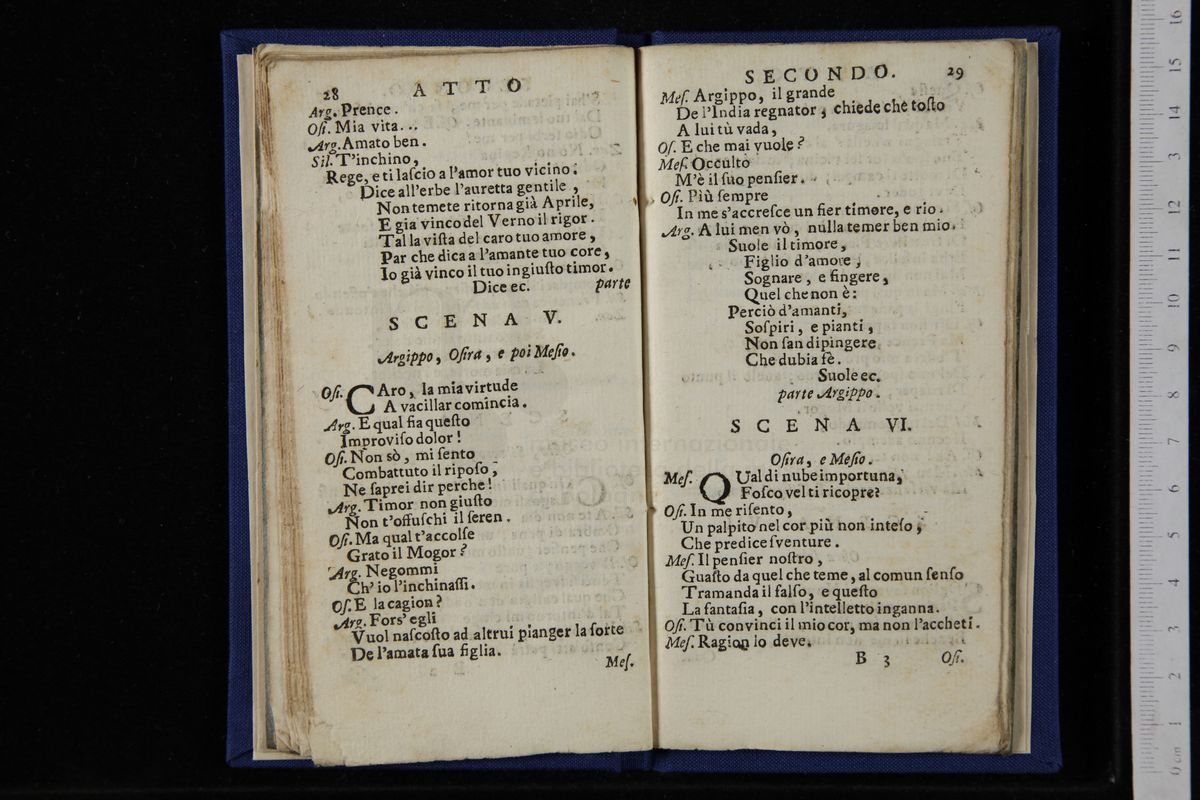 28 ATTO
Arg. Prence.
Osi. Mia vita...
Arg. Amato ben.
Sil. T'inchino,
Rege, e ti laſcio a l'amor tuo vicino.
Dice all'erbe l'auretta gentile,
Non temete ritorna già Aprile,
E gia vinco del Verno il rigor.
Tal la viſta del caro tuo amore,
Par che dica a l'amante tuo core,
Io già vinco il tuo ingiuſto timor.
Dice ec. parte
SCENA V.
Argippo, Oſira, e poi Meſio.
Oſi. CAro, la mia virtude
A vacillar comincia.
Arg. E qual fia queſto
Improviſo dolor!
Oſi. Non sò, mi ſento
Combattuto il ripoſo,
Ne ſaprei dir perche!
Arg. Timor non giuſto
Non t'offuſchi il ſeren.
Oſi. Ma qual t'accolſe
Grato il Mogor?
Arg. Negommi
Ch' io l'inchinaſſi.
Oſ. E la cagion?
Arg. Fors' egli
Vuol naſcoſto ad altrui pianger la ſorte
De l'amata ſua figlia.
Meſ.
SECONDO. 29
Meſ. Argippo, il grande
De l'India regnator, chiede che toſto
A lui tù vada,
Oſ. E che mai vuole?
Meſ. Occulto
M'è il ſuo penſier.
Oſi. Più ſempre
In me s'accreſce un fier timore, e rio.
Arg. A lui men vò, nulla temer ben mio.
Suole il timore,
Figlio d'amore,
Sognare, e fingere,
Quel che non è:
Perciò d'amanti,
Soſpiri, e pianti,
Non ſan dipingere
Che dubia fè.
Suole ec.
parte Argippo.
SCENA VI.
Oſira, e Meſio.
Meſ. QUal di nube importuna,
Foſco vel ti ricopre?
Oſi. In me riſento,
Un palpito nel cor più non inteſo,
Che predice ſventure.
Meſ. Il penſier noſtro,
Guaſto da quel che teme, al comun ſenſo
Tramanda il falſo, e queſto
La fantaſia, con l'intelletto inganna.
Oſi. Tù convinci il mio cor, ma non l'accheti.
Meſ. Ragion lo deve.
B 3 Oſi.
museo internazionale
e biblioteca
0 cm 1 2 3 4 5 6 7 8 9 10 11 12 13 14 15 16